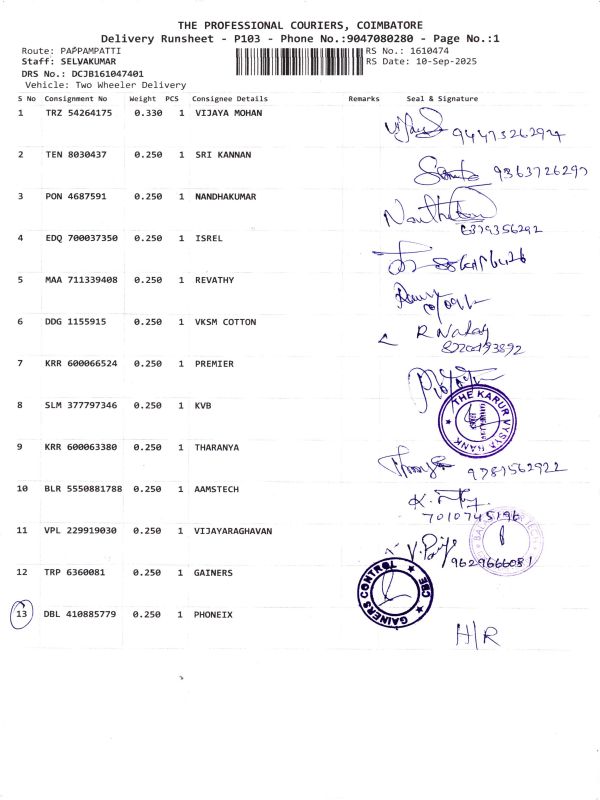 THE PROFESSIONAL COURIERS, COIMBATORE
Delivery Runsheet - P103 - Phone No.:9047080280 - Page No.:1
Route: PAPPAMPATTI
RS No.: 1610474
Staff: SELVAKUMAR
RS Date: 10-Sep-2025
DRS No.: DCJB161047401
Vehicle: Two Wheeler Delivery
S No Consignment No Weight PCS Consignee Details Remarks Seal & Signature
1 TRZ 54264175 0.330 1 VIJAYA MOHAN
2 TEN 8030437 0.250 1 SRI KANNAN
9363726297
3 PON 4687591 0.250 1 NANDHAKUMAR
6379356292
4 EDQ 700037350 0.250 1 ISREL
5 MAA 711339408 0.250 1 REVATHY
6 DDG 1155915 0.250 1 VKSM COTTON
7 KRR 600066524 0.250 1 PREMIER
8 SLM 377797346 0.250 1 KVB
THE KARUR VYSYA BANK
9 KRR 600063380 0.250 1 THARANYA
9787562922
10 BLR 5550881788 0.250 1 AAMSTECH
7010745196
11 VPL 229919030 0.250 1 VIJAYARAGHAVAN
9629666081
12 TRP 6360081 0.250 1 GAINERS
GAINERS CONTROL CBE
13 DBL 410885779 0.250 1 PHONEIX
H/R